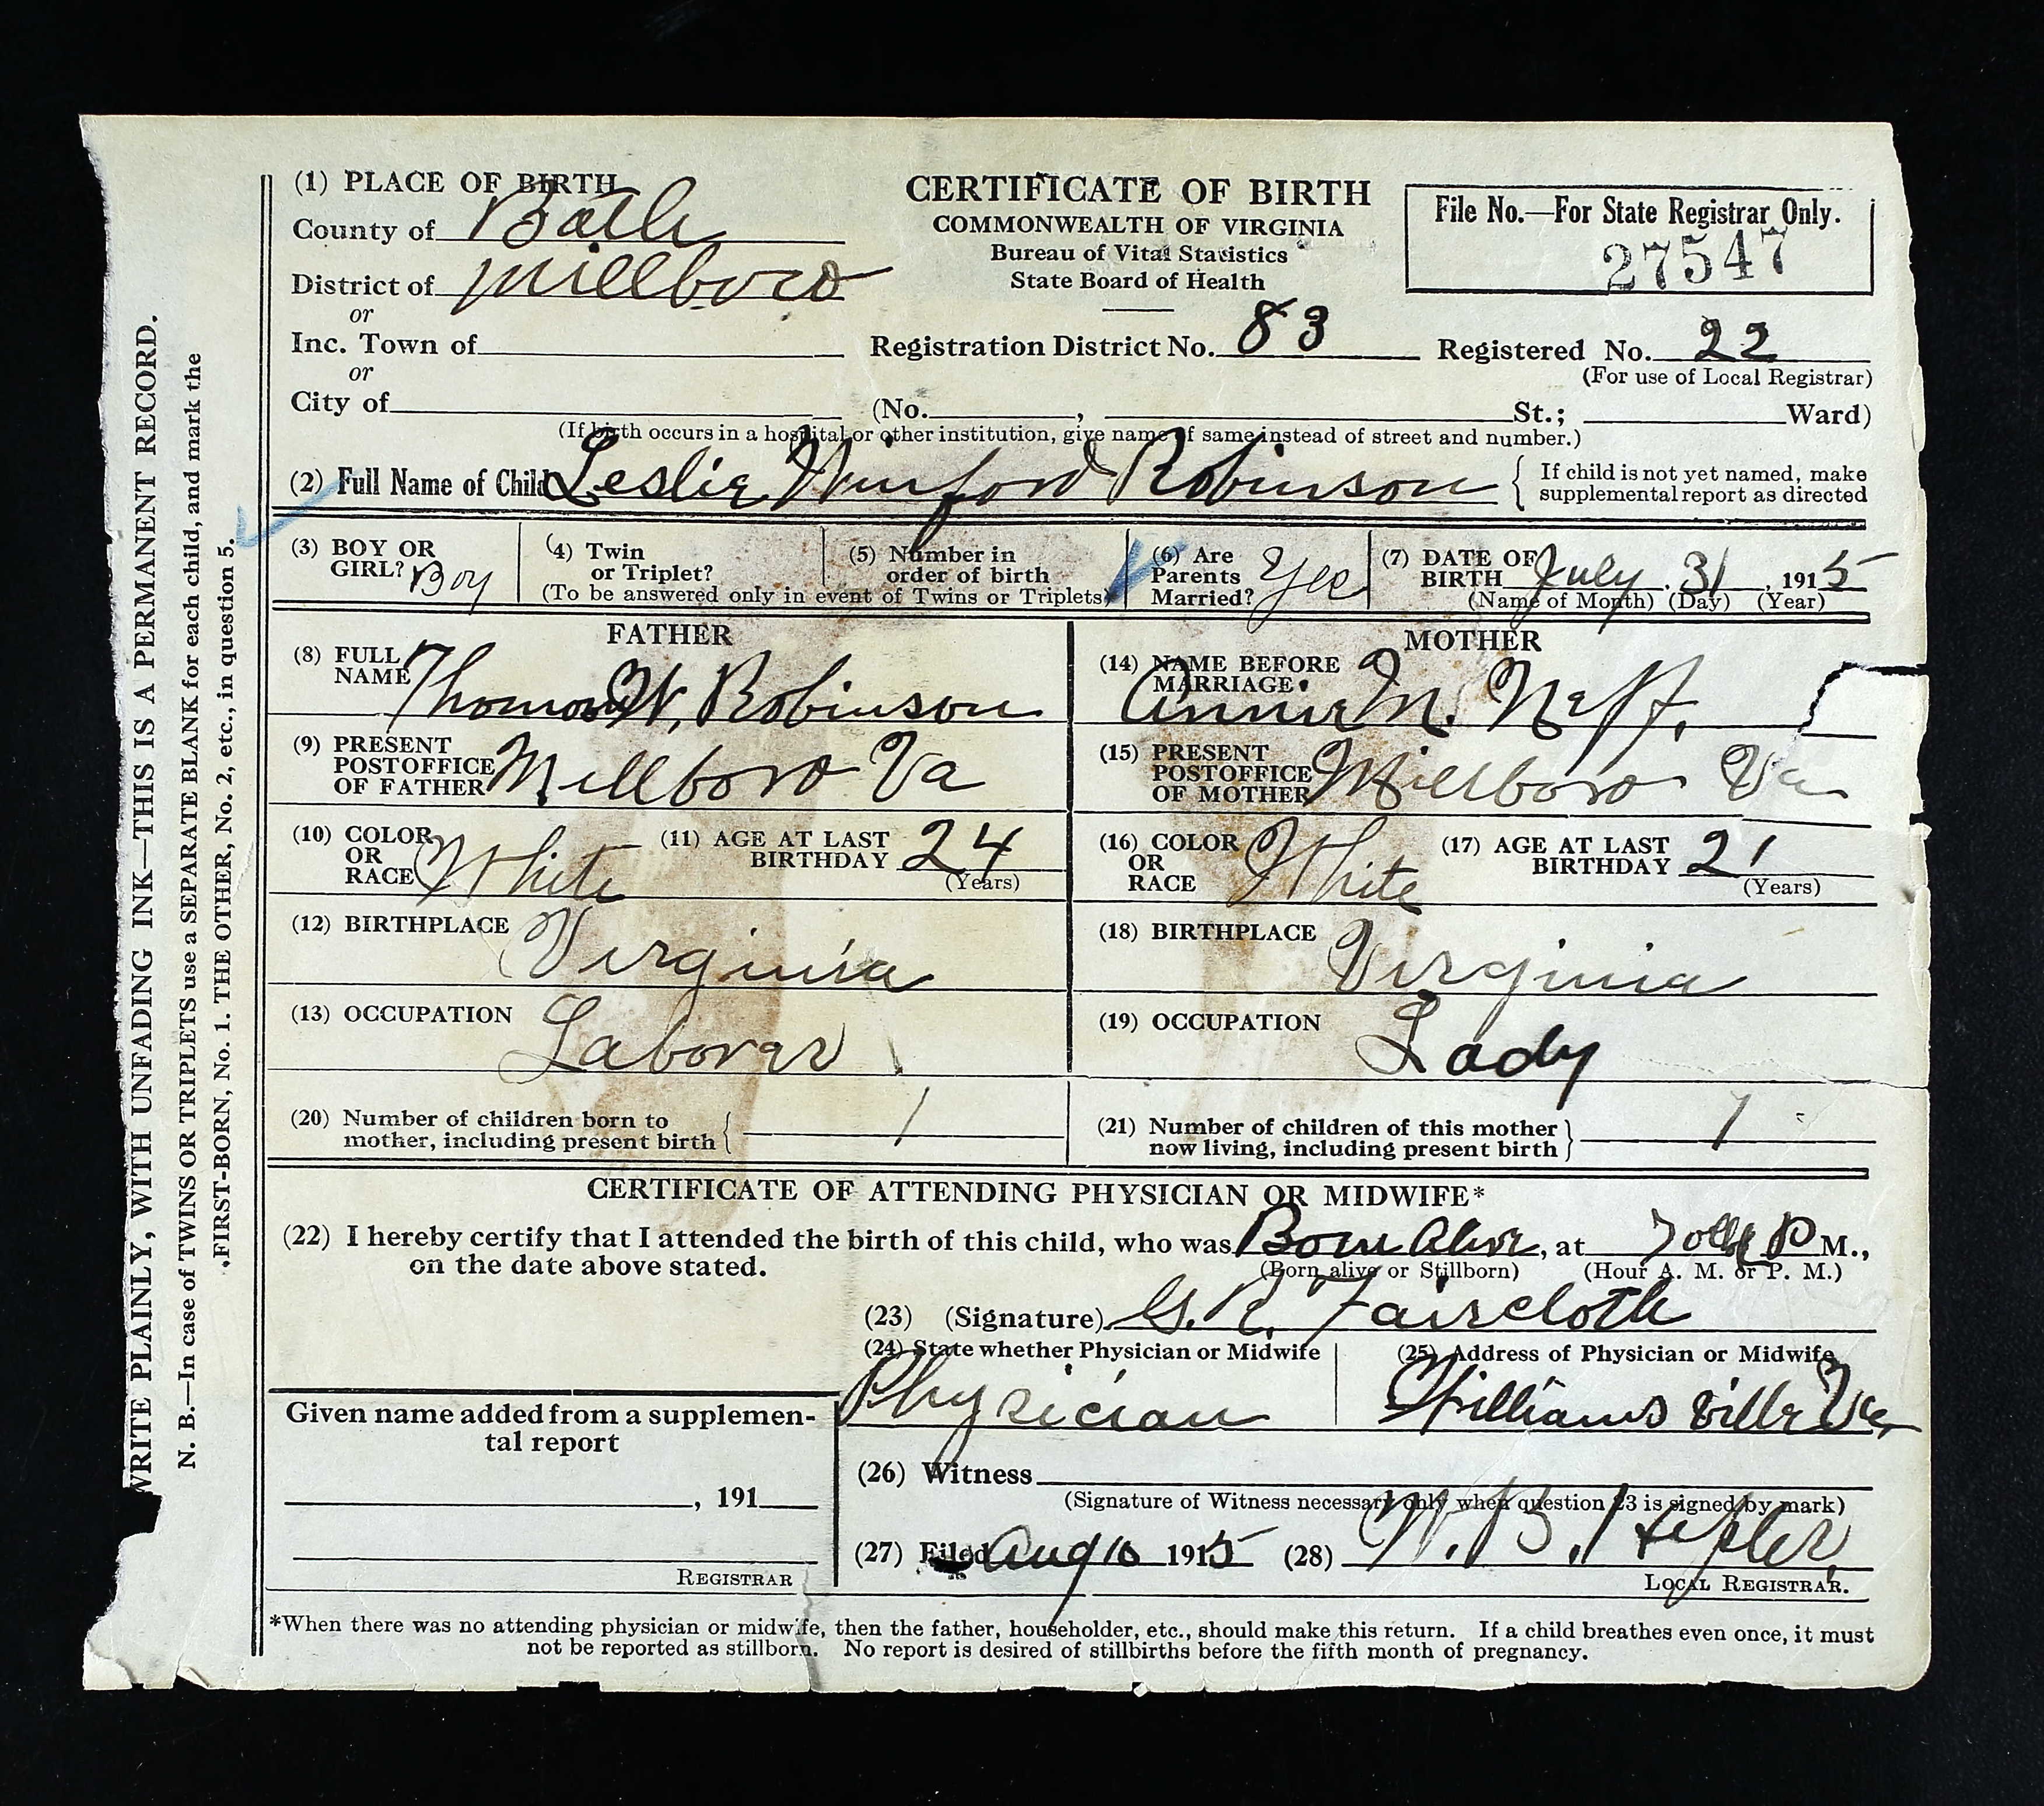 WRITE PLAINLY, WITH UNFADING INK—THIS IS A PERMANENT RECORD.
N. B.—In case of TWINS OR TRIPLETS use a SEPARATE BLANK for each child, and mark the
FIRST-BORN, No. 1. THE OTHER, No. 2, etc., in question 5.
(1) PLACE OF BIRTH
County of Bath
District of Millboro
or
Inc. Town of
or
City of
CERTIFICATE OF BIRTH
COMMONWEALTH OF VIRGINIA
Bureau of Vital Statistics
State Board of Health
File No.—For State Registrar Only.
27547
Registration District No. 83 Registered No. 22
(For use of Local Registrar)
(No. , St.; Ward)
(If birth occurs in a hospital or other institution, give name of same instead of street and number.)
(2) Full Name of Child Leslie Winford Robinson { If child is not yet named, make
supplemental report as directed
(3) BOY OR
GIRL? Boy
(4) Twin
or Triplet?
(5) Number in
order of birth
(To be answered only in event of Twins or Triplets)
(6) Are
Parents
Married? Yes
(7) DATE OF
BIRTH July 31, 1915
(Name of Month) (Day) (Year)
FATHER
(8) FULL
NAME Thomas W. Robinson
(9) PRESENT
POSTOFFICE
OF FATHER Millboro Va
(10) COLOR
OR
RACE White
(11) AGE AT LAST
BIRTHDAY 24
(Years)
(12) BIRTHPLACE Virginia
(13) OCCUPATION Laborer
(20) Number of children born to
mother, including present birth { 1
MOTHER
(14) NAME BEFORE
MARRIAGE Annie M. Neff.
(15) PRESENT
POSTOFFICE
OF MOTHER Millboro Va
(16) COLOR
OR
RACE White
(17) AGE AT LAST
BIRTHDAY 21
(Years)
(18) BIRTHPLACE Virginia
(19) OCCUPATION Lady
(21) Number of children of this mother
now living, including present birth } 1
CERTIFICATE OF ATTENDING PHYSICIAN OR MIDWIFE*
(22) I hereby certify that I attended the birth of this child, who was Born Alive, at 7 P M.,
on the date above stated. (Born alive or Stillborn) (Hour A. M. or P. M.)
(23) (Signature) G. R. Faircloth
(24) State whether Physician or Midwife
Physician
(25) Address of Physician or Midwife
Williamsville Va
Given name added from a supplemen-
tal report
, 191
REGISTRAR
(26) Witness
(Signature of Witness necessary only when question 23 is signed by mark)
(27) Filed Aug 10 1915 (28) W. B. Hepler
LOCAL REGISTRAR.
*When there was no attending physician or midwife, then the father, householder, etc., should make this return. If a child breathes even once, it must
not be reported as stillborn. No report is desired of stillbirths before the fifth month of pregnancy.